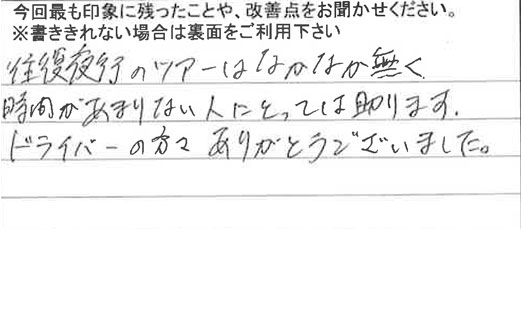 今回最も印象に残ったことや、改善点をお聞かせください。
※書ききれない場合は裏面をご利用下さい
往復夜行のツアーはなかなか無く
時間があまりない人にとっては助ります.
ドライバーの方々ありがとうございました。